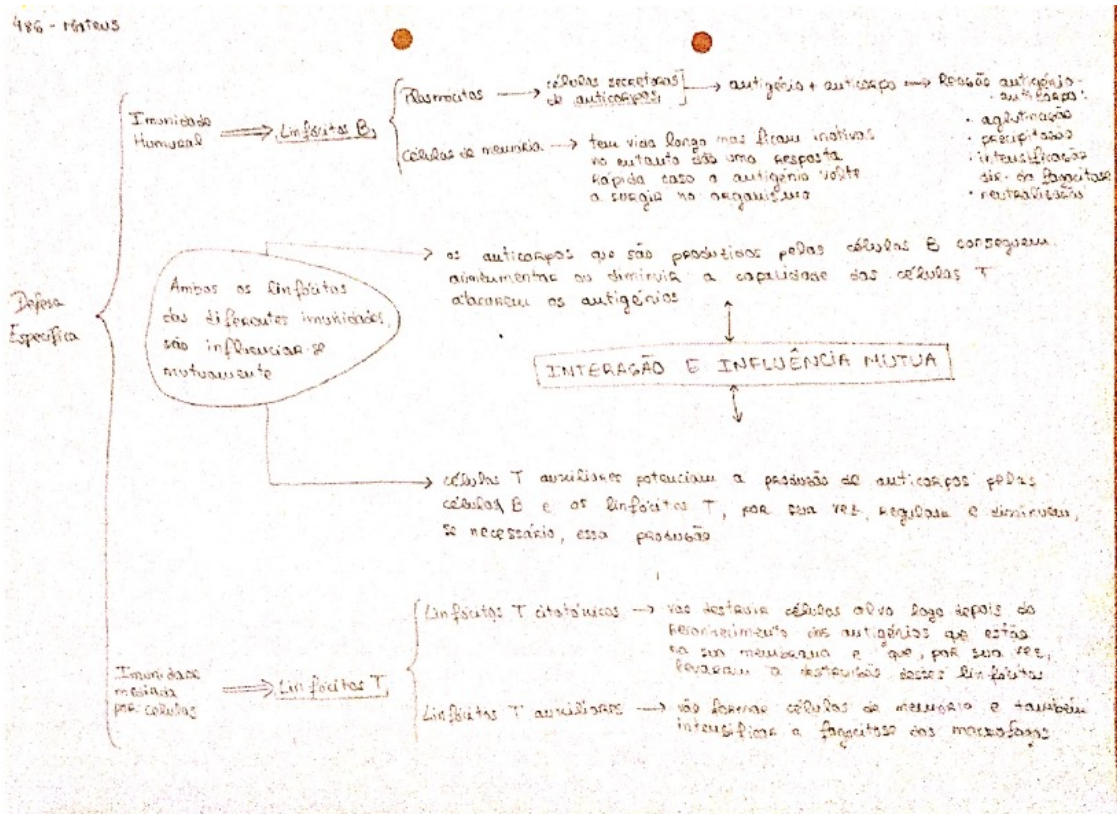 486 - Mateus
Imunidade
Humural
Linfócitos B
Plasmócitos
células secretoras
de anticorpos
antigénio + anticorpo
Reação antigénio-
anticorpo:
• aglutinação
• precipitação
• intensificação
dir. da fagocitose
• neutralização
Células de memória
tem vida longa mas ficam inativas
no entanto dão uma resposta
rápida caso o antigénio volte
a surgir no organismo
Defesa
Específica
Ambos os linfócitos
das diferentes imunidades
são influenciar-se
mutuamente
os anticorpos que são produzidos pelas células B conseguem
ou diminuir a capacidade das células T
atacarem os antigénios
INTERAÇÃO E INFLUÊNCIA MUTUA
células T auxiliares potenciam a produção de anticorpos pelas
células B e os linfócitos T, por sua vez, regulam e diminuem,
se necessário, essa produção
Imunidade
mediada
por células
Linfócitos T
Linfócitos T citotóxicos
vão destruir células alvo logo depois do
reconhecimento dos antigénios que estão
na sua membrana e que, por sua vez,
levaram à destruição desses linfócitos
Linfócitos T auxiliares
vão formar células de memória e também
intensificar a fagocitose dos macrofagos